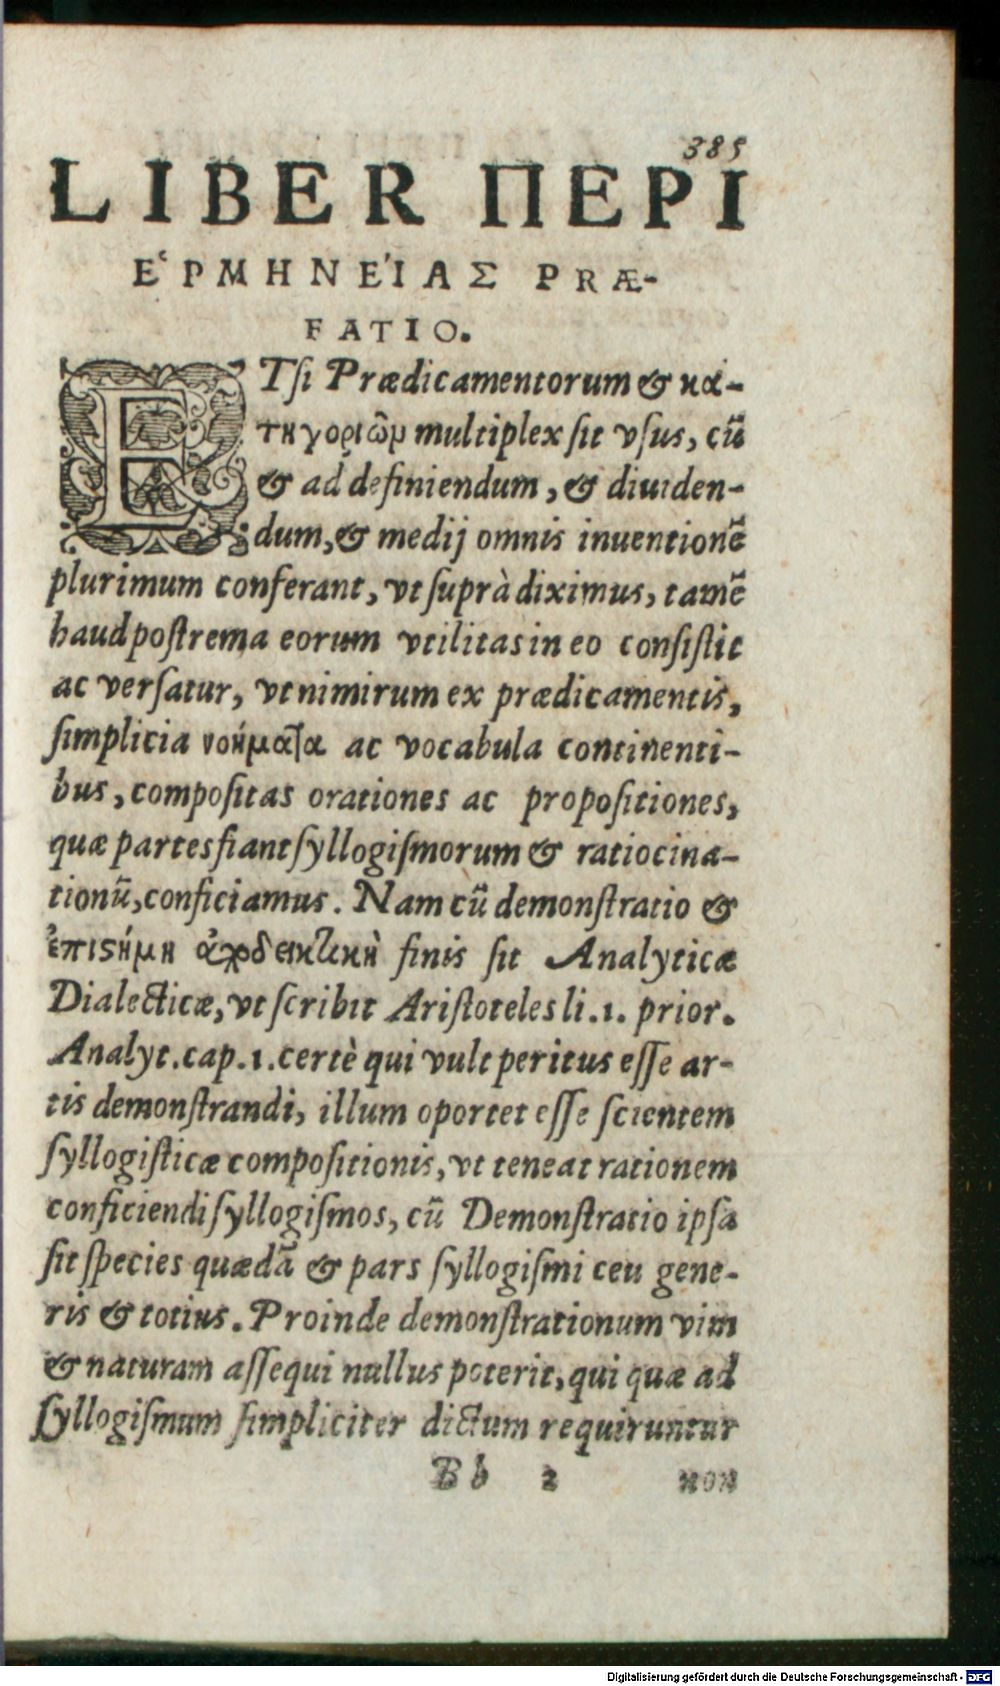 385
LIBER ΠΕΡΙ
ΕʽΡΜΗΝΕΊΑΣ PRÆ-
FATIO.
ETſi Prædicamentorum & κα-
τηγοριῶν multiplex ſit vſus, cū
& ad definiendum, & diuiden-
dum, & medij omnis inuentionē
plurimum conferant, vt ſuprà diximus, tamē
haud poſtrema eorum vtilitas in eo conſiſtit
ac verſatur, vt nimirum ex prædicamentis,
ſimplicia νοήματα ac vocabula continenti-
bus, compoſitas orationes ac propoſitiones,
quæ partes fiant ſyllogiſmorum & ratiocina-
tionū, conficiamus. Nam cū demonſtratio &
ἐπιϛήμη ἀποδεικτικὴ finis ſit Analyticæ
Dialecticæ, vt ſcribit Ariſtoteles li.1. prior.
Analyt.cap.1.certè qui vult peritus eſſe ar-
tis demonſtrandi, illum oportet eſſe ſcientem
ſyllogiſticæ compoſitionis, vt teneat rationem
conficiendi ſyllogiſmos, cū Demonſtratio ipſa
ſit ſpecies quædā & pars ſyllogiſmi ceu gene-
ris & totius. Proinde demonſtrationum vim
& naturam aſſequi nullus poterit, qui quæ ad
ſyllogiſmum ſimpliciter dictum requiruntur
Bb 2 non
Digitalisierung gefördert durch die Deutsche Forschungsgemeinschaft - DFG